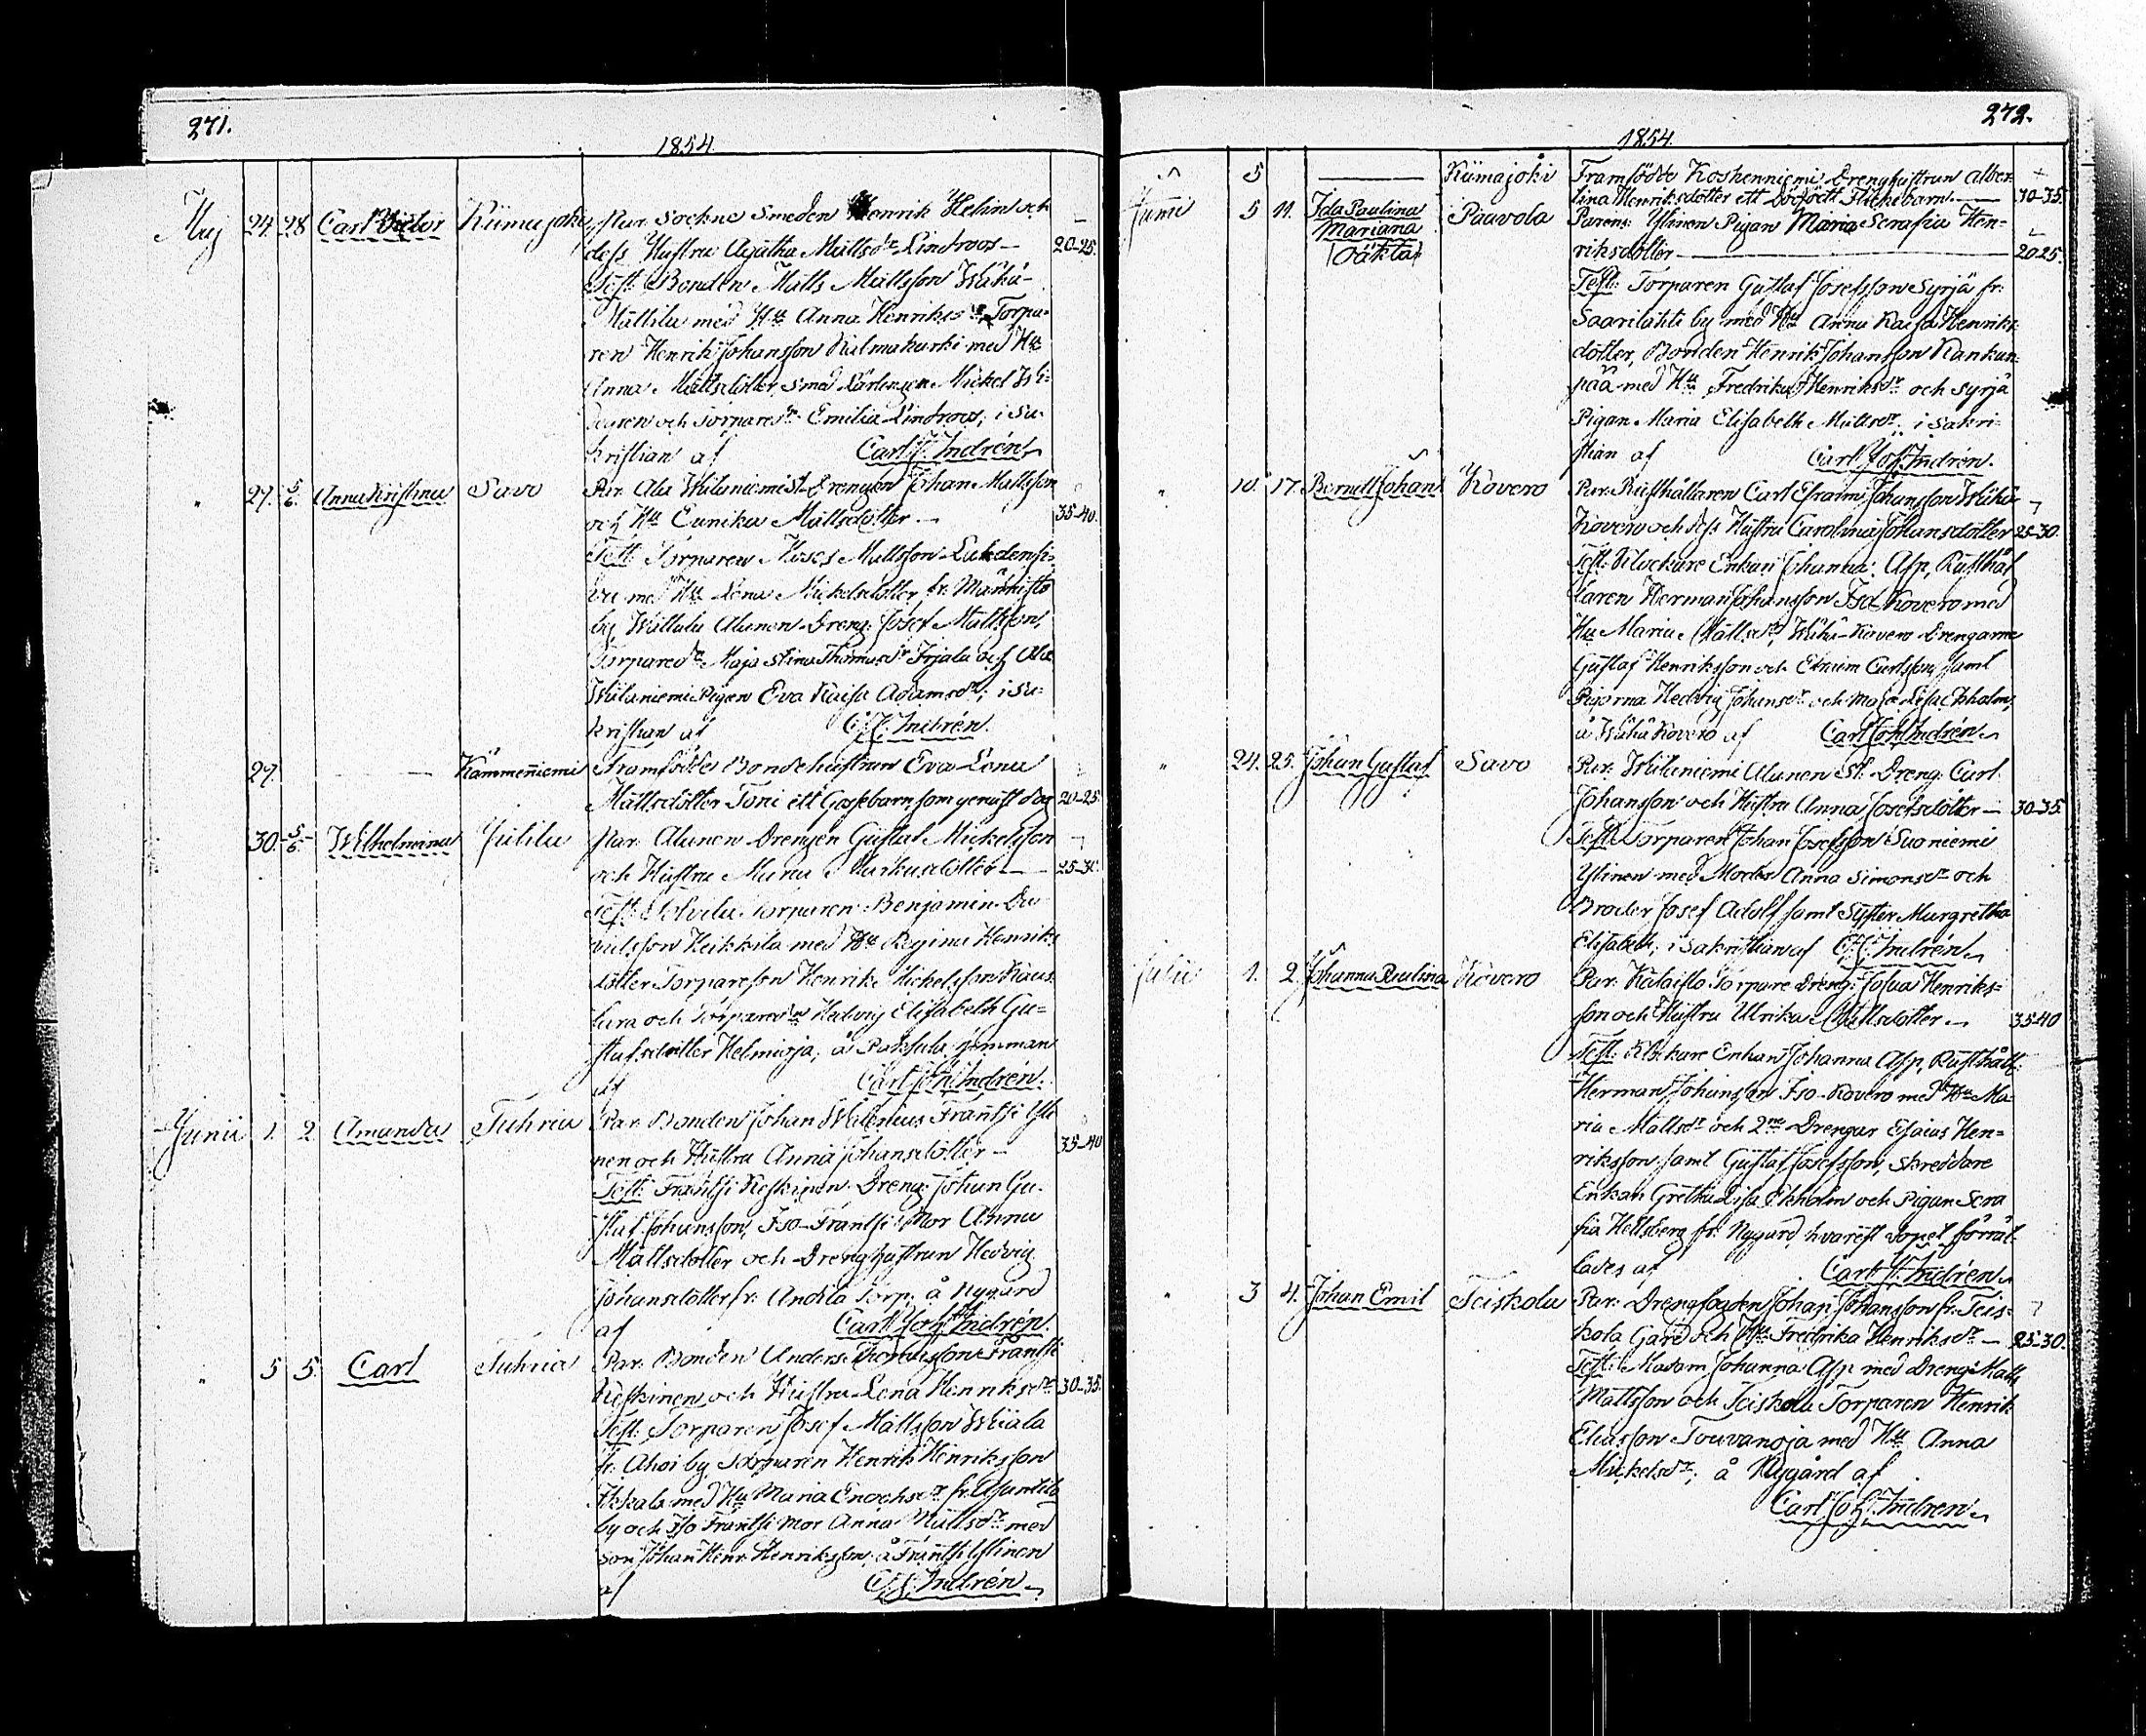 271.
1854.
Maj 24. 28 Carl Victor Kiimajoki Par. Sockne Smeden Henrik Helin och
dess Hustru Agatha Mattsdr Lindroos — 20-25.
Test: Bonden Matts Mattsson Wähä-
Mattila med Hu Anna Henriksdr Torpa-
ren Henrik Johansson Kulmakurki med Hu
Anna Mattsdotter, smed Lärlingen Mickel
och Torparedr Emilia Lindroos; i Sa-
kristian af Carl J. Indrén
" 27. 5/6. Anna Kristina Savo Par. Ala Wilaniemi St. Drengen Johan Mattsson
och Hu Eunika Mattsdotter — 35-40.
Test: Torparen Moses Mattsson
med Hu Lena Mickelsdotter fr. Männistö
by, Wallala Alanen Dreng: Josef Mattsson,
Torparedr Maja Stina Thomasdr Irjala och Ala
Wilaniemi Pigan Eva Kaisa Adamsdr; i Sa-
kristian af C. J. Indrén.
27. — Kämmenniemi Framfödde Bondehustrun Eva Lena
Mattsdotter Toni ett Gossebarn som genast dog 20-25.
30. 5/6. Wilhelmina Yulilu Par. Alanen Drengen Gustaf Mickelsson
och Hustru Maria Markusdotter — 25-30.
Test: Torparen Benjamin Da-
vidsson Heikkila med Hu Regina Henriks
dotter Torpareson Henrik Mickelsson
och Torparedr Hedvig Elisabeth Gu-
stafsdotter Helminoja; å
af Carl Joh. Indrén.
Junii 1. 2 Amanda Tuhria Par. Bonden Johan Walenius Frantsi Yli-
nen och Hustru Anna Johansdotter — 35-40
Test: Frantsi Keskinen Dreng: Johan Gu-
staf Johansson, Iso-Frantsi Mor Anna
Mattsdotter och Dreng hustrun Hedvig
Johansdotter fr. Anola Torp; å Nygård
af Carl Joh. Indrén.
" 5 5. Carl Tuhria Par. Bonden Anders Thomasson Frantsi
Keskinen och Hustru Lena Henriksdr 30-35.
Test: Torparen Josef Mattsson Wiiala
fr. Ahoi by, Torparen Henrik Henriksson
med Hu Maria Enochsdr fr. Asuntila
by och Iso Frantsi Mor Anna Mattsdr med
son Johan Henr. Henriksson; å Frantsi Ylinen
af C. J. Indrén
272.
1854.
5 — Kiimajoki Framfödde Koskenniemi Drenghustrun Alber-
tina Henriksdotter ett dödfödt Flickebarn — 30-35.
Junii 5 11. Ida Paulina Paavola Parens: Ylinen Pigan Maria Serafia Hen-
Mariana
(Oäkta) riksdotter — 20-25.
Test: Torparen Gustaf Josefsson Syrjä fr.
Saarilahti by med Hu Anna Kaisa Henriks
dotter, Bonden Henrik Johansson Kankan-
pää med Hu Fredrika Henriksdr och Syrjä
Pigan Maria Elisabeth Mattsdr; i Sakri-
stian af Carl Joh. Indrén.
" 10. 17. Berndt Johan Kovero Par. Rusthållaren Carl Efraim Johansson Wähä
Kovero och dess Hustru Carolina Johansdotter 25-30.
Test: Klockare Enkan Johanna Asp, Rusthål
laren Herman Johansson Iso-Kovero med
Hu Maria Mattsdr, Wähä-Kovero Drengarne
Gustaf Henriksson och Efraim Carlsson samt
Pigorna Hedvig Johansdr och Maja Lisa Ekholm;
å Wähä Kovero af Carl Joh. Indrén
" 24. 25. Johan Gustaf Savo Par. Wilaniemi Alanen St. Dreng: Carl
Johansson och Hustru Anna Josefsdotter — 30-35.
Test: Torparen Johan Josefsson Suoniemi
Ylinen med Moder Anna Simonsdr och
Broder Josef Adolf samt Syster Margretha
Elisabeth; i Sakristian af C. J. Indrén
Julii 1. 2 Johanna Paulina Kovero Par. Kalaisto Torpare Dreng: Josua Henriks-
son och Hustru Ulrika Mattsdotter — 35-40
Test: Klockare Enkan Johanna Asp, Rusthåll:
Herman Johansson Iso-Kovero med Hu Ma-
ria Mattsdr och 2ne Drengar Esaias Hen-
riksson samt Gustaf Josefsson, Skreddare
Enkan Gretha Lisa Ekholm och Pigan Sera
fia Hellsberg fr. Nygård, hvarest dopet förrät-
tades af Carl J. Indrén
" 3 4. Johan Emil Teiskola Par. Drengfogden Johan Johansson fr. Teis-
kola Gård och Hu Fredrika Henriksdr — 25-30.
Test: Madam Johanna Asp med Dreng: Matts
Mattsson och Teiskola Torparen Henrik
Eliasson Touvanoja med Hu Anna
Mickelsdr; å Nygård af
Carl Joh. Indrén